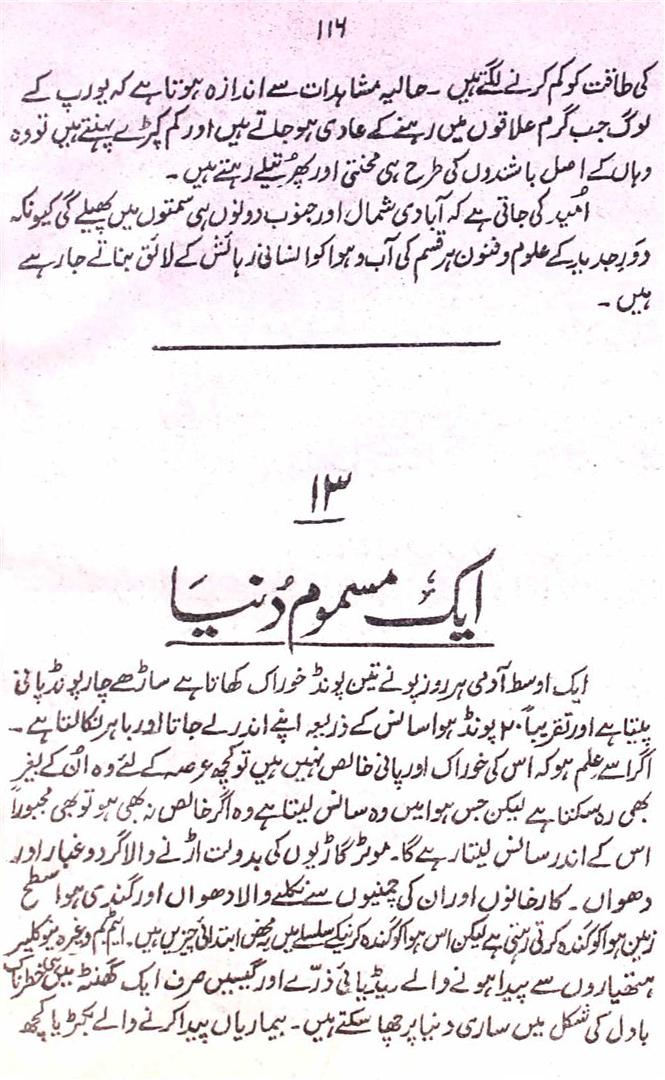 ۱۱۶
کی طاقت کو کم کرنے لگتے ہیں ۔ حالیہ مشاہدات سے اندازہ ہوتا ہے کہ یورپ کے
لوگ جب گرم علاقوں میں رہنے کے عادی ہو جاتے ہیں اور کم کپڑے پہنتے ہیں تو وہ
وہاں کے اصل باشندوں کی طرح ہی محنتی اور پھرتیلے رہتے ہیں ۔
اُمید کی جاتی ہے کہ آبادی شمال اور جنوب دونوں ہی سمتوں میں پھیلے گی کیونکہ
دورِ جدید کے علوم و فنون ہر قسم کی آب و ہوا کو انسانی رہائش کے لائق بناتے جا رہے
ہیں ۔
۱۳
ایک مسموم دُنیا
ایک اوسط آدمی ہر روز پونے تین پونڈ خوراک کھاتا ہے ساڑھے چار پونڈ پانی
پیتا ہے اور تقریباً ۲۰ پونڈ ہوا سانس کے ذریعہ اپنے اندر لے جاتا اور باہر نکالتا ہے ۔
اگر اسے علم ہو کہ اس کی خوراک اور پانی خالص نہیں ہیں تو کچھ عرصہ کے لئے وہ اُن کے بغیر
بھی رہ سکتا ہے لیکن جس ہوا میں وہ سانس لیتا ہے وہ اگر خالص نہ بھی ہو تو بھی مجبوراً
اس کے اندر سانس لیتا رہے گا ۔ موٹر گاڑیوں کی بدولت اڑنے والا گرد و غبار اور
دھواں ۔ کارخانوں اور ان کی چمنیوں سے نکلنے والا دھواں اور گندی ہوا سطح
زمین ہوا کو گندہ کرتی رہتی ہے لیکن اس ہوا کو گندہ کرنیکے سلسلے میں یہ محض ابتدائی چیزیں ہیں ۔ ایٹم بم وغیرہ نیوکلیر
ہتھیاروں سے پیدا ہونے والے ریڈیائی ذرّے اور گیسیں صرف ایک گھنٹہ میں ہی خطرناک
بادل کی شکل میں ساری دنیا پر چھا سکتے ہیں ۔ بیماریاں پیدا کرنے والے بکٹریا کچھ